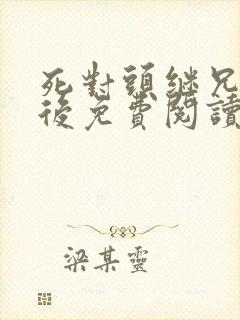 死對頭繼兄
後免費閱讀
梁某靈